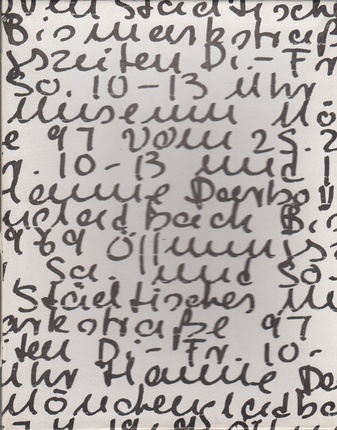 vom Städtische
Bismarkstraß
gszeiten Di.-Fr
So. 10-13 Uhr
Museum Mö
e 97 vom 25.2
r. 10-13 und 1
Hanne Darbov
nchengladbach Bis
969 Öffnungsz
Sa. und So.
Städtisches Mu
arkstraße 97
iten Di.-Fr. 10-
Uhr Hanne Da
Mönchengladba